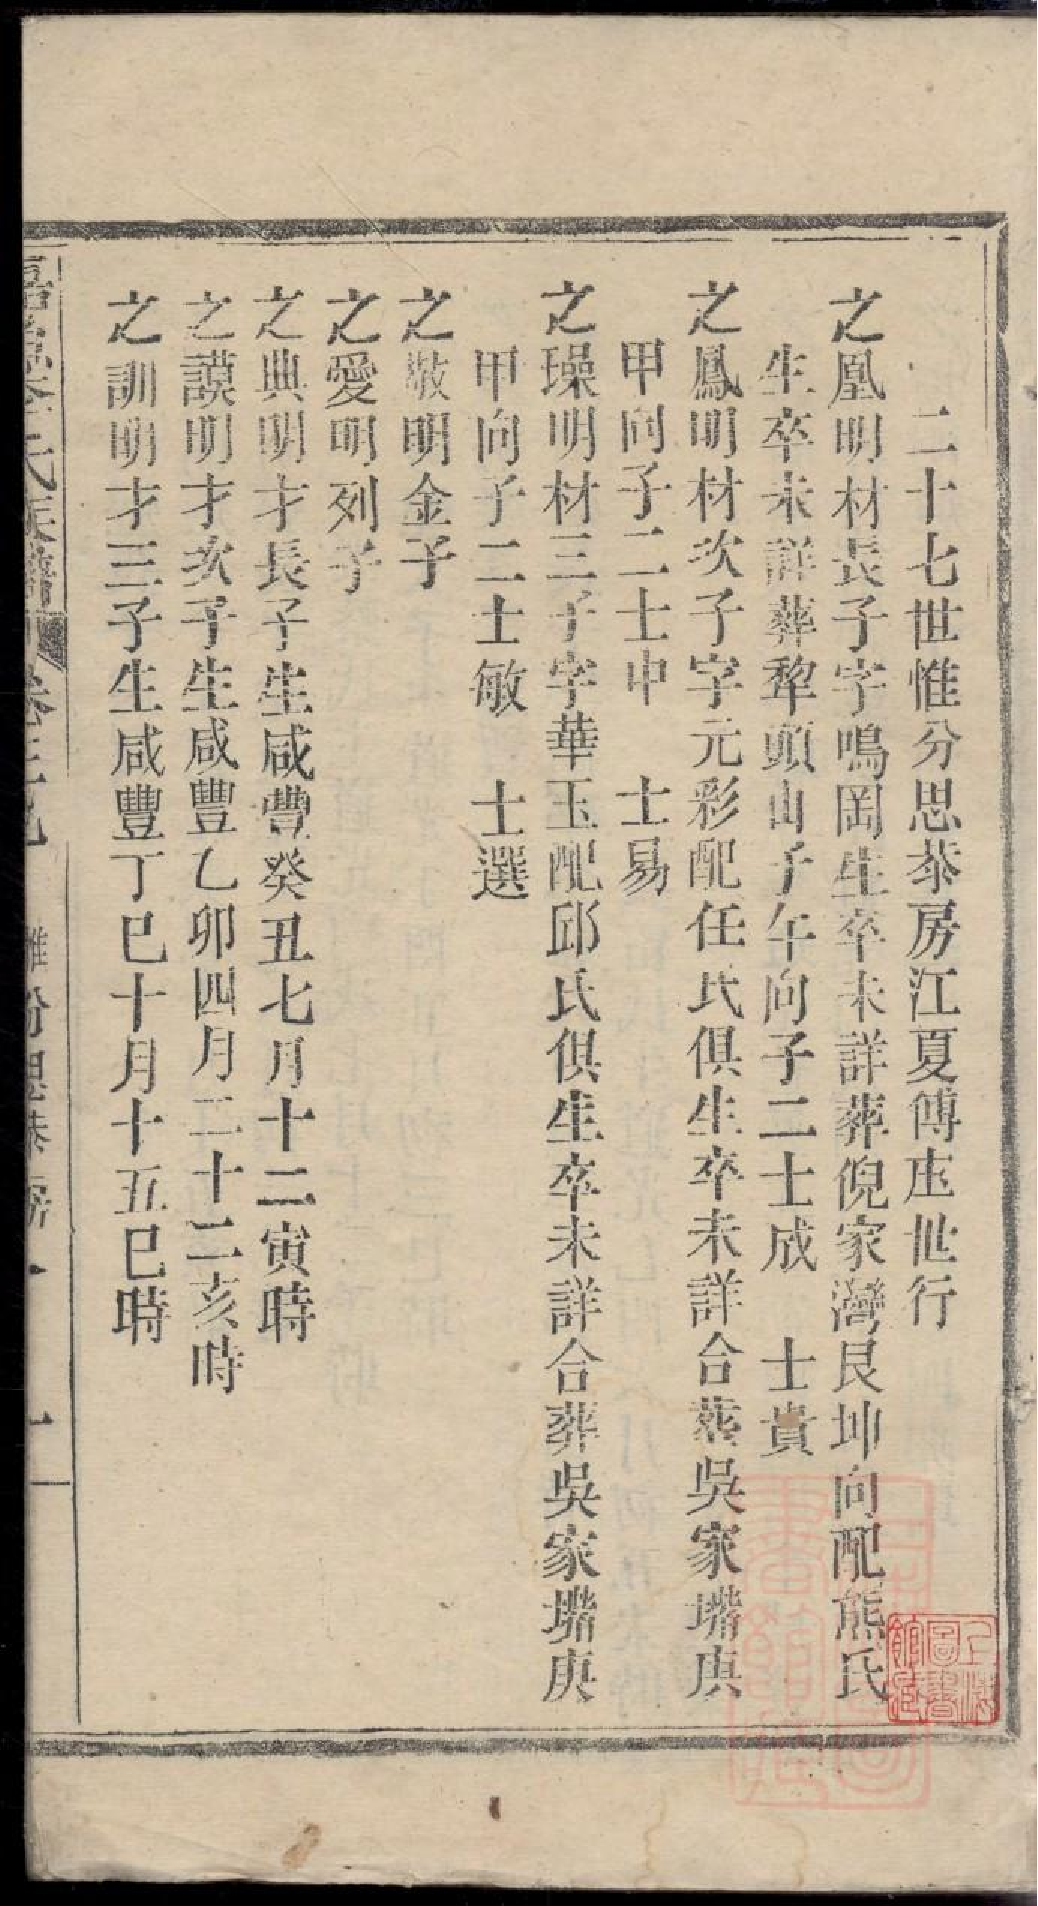 二十七世惟分思恭房江夏傅庄世行
之凰明材長子字鳴岡生卒未詳葬倪家灣艮坤向配熊氏
生卒未詳葬犂頭山子午向子二士成　士貴
之鳳明材次子字元彩配任氏俱生卒未詳合葬吳家墈庚
甲向子二士中　士易
之璪明材三子字華玉配邱氏俱生卒未詳合葬吳家墈庚
甲向子二士敏　士選
之敬明金子
之愛明列子
之典明才長子生咸豐癸丑七月十二寅時
之謨明才次子生咸豐乙卯四月二十二亥時
之訓明才三子生咸豐丁巳十月十五巳時
氏族譜
上海圖書館藏